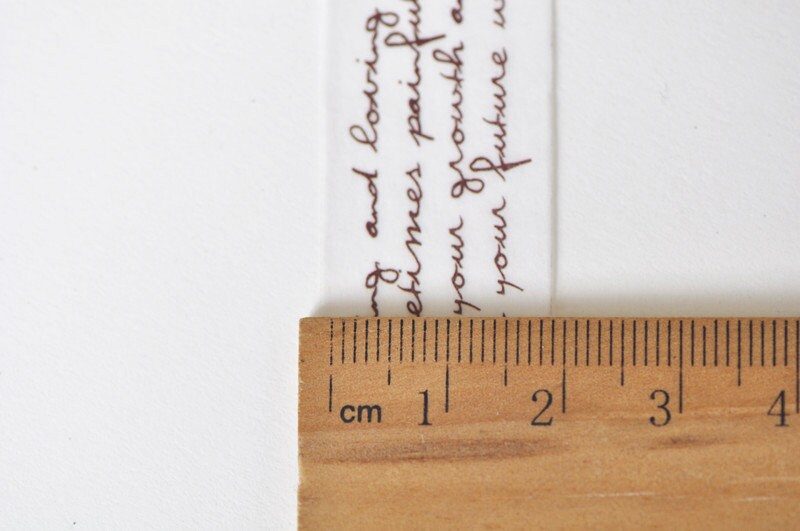 ng and loving
etimes painful
your growth a
your future w
cm 1 2 3 4